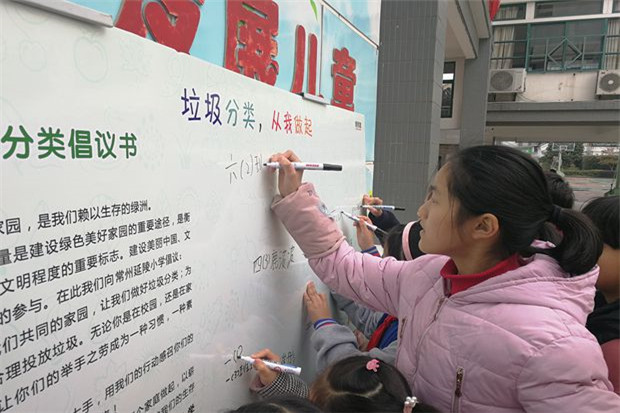 发展儿童
垃圾分类，从我做起
分类倡议书
家园，是我们赖以生存的绿洲。
量是建设绿色美好家园的重要途径，是衡
文明程度的重要标志。建设美丽中国、文
的参与。在此我们向常州延陵小学倡议：
们共同的家园，让我们做好垃圾分类；为
合理投放垃圾。无论你是在校园，还是在家
让你们的举手之劳成为一种习惯，一种素
手，用我们的行动感召你们的
个家庭做起，以崭
我们的生存
六(2)
四(3)